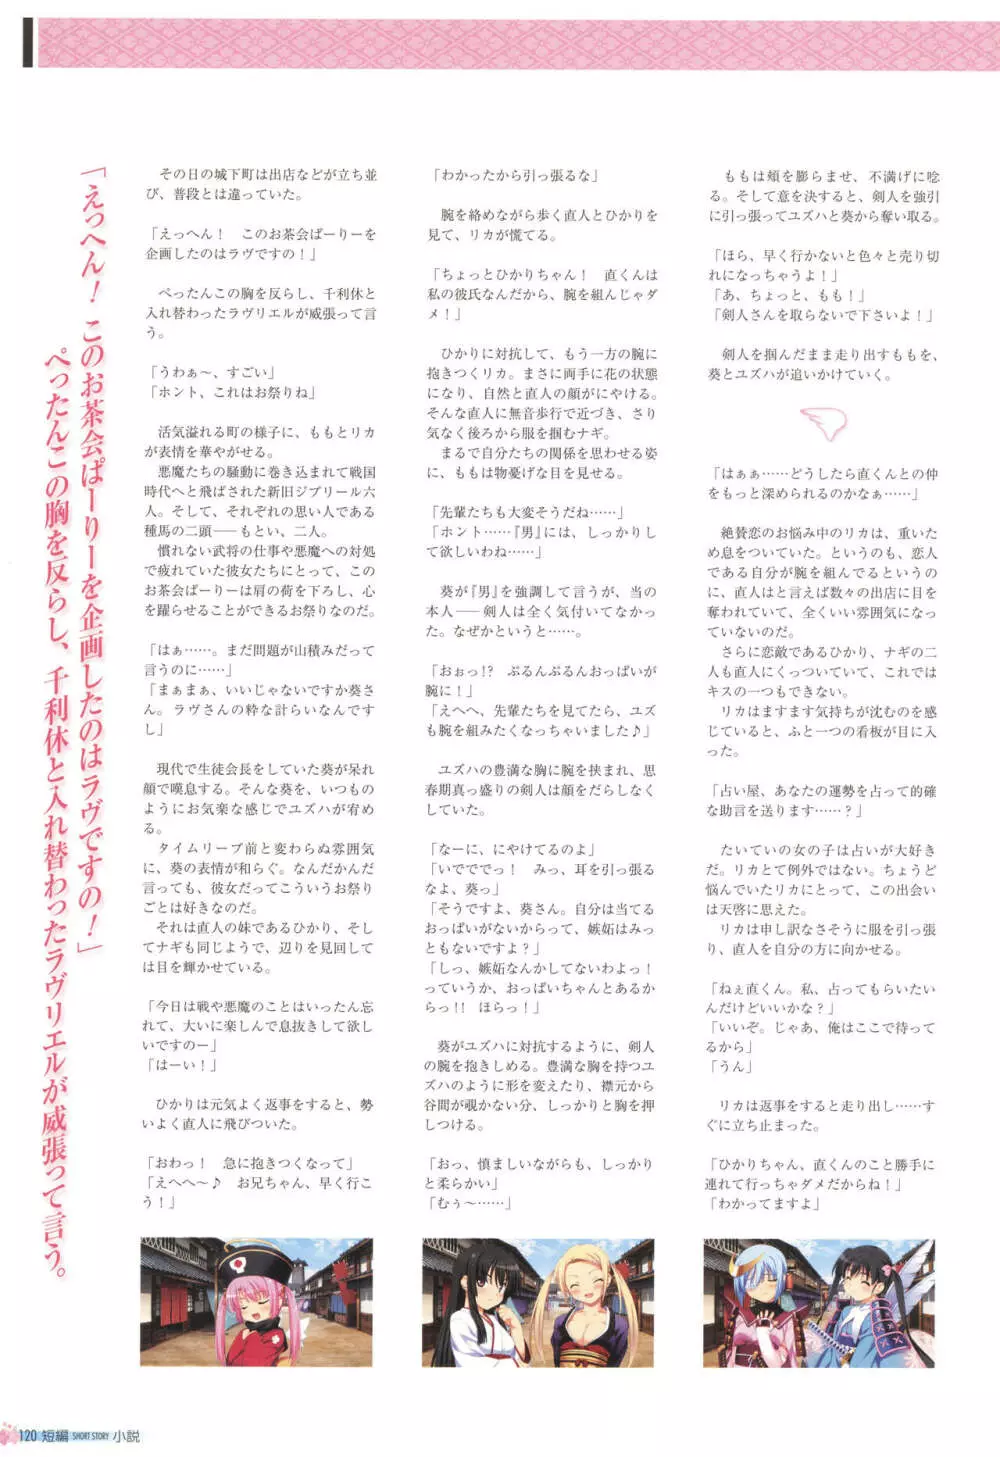 「えっへん！ このお茶会ぱーりーを企画したのはラヴですの！」
ぺったんこの胸を反らし、千利休と入れ替わったラヴリエルが威張って言う。
その日の城下町は出店などが立ち並
び、普段とは違っていた。
「えっへん！　このお茶会ぱーりーを
企画したのはラヴですの！」
ぺったんこの胸を反らし、千利休と
入れ替わったラヴリエルが威張って言
う。
「うわぁ〜、すごい」
「ホント、これはお祭りね」
活気溢れる町の様子に、ももとリカ
が表情を華やがせる。
悪魔たちの騒動に巻き込まれて戦国
時代へと飛ばされた新旧ジブリール六
人。そして、それぞれの思い人である
種馬の二頭――もとい、二人。
慣れない武将の仕事や悪魔への対処
で疲れていた彼女たちにとって、この
お茶会ぱーりーは肩の荷を下ろし、心
を躍らせることができるお祭りなのだ。
「はぁ……。まだ問題が山積みだって
言うのに……」
「まぁまぁ、いいじゃないですか葵さ
ん。ラヴさんの粋な計らいなんです
し」
現代で生徒会長をしていた葵が呆れ
顔で嘆息する。そんな葵を、いつもの
ようにお気楽な感じでユズハが宥め
る。
タイムリープ前と変わらぬ雰囲気
に、葵の表情が和らぐ。なんだかんだ
言っても、彼女だってこういうお祭り
ごとは好きなのだ。
それは直人の妹であるひかり、そし
てナギも同じようで、辺りを見回して
は目を輝かせている。
「今日は戦や悪魔のことはいったん忘
れて、大いに楽しんで息抜きして欲し
いですのー」
「はーい！」
ひかりは元気よく返事をすると、勢
いよく直人に飛びついた。
「おわっ！　急に抱きつくなって」
「えへへ〜♪　お兄ちゃん、早く行こ
う！」
「わかったから引っ張るな」
腕を絡めながら歩く直人とひかりを
見て、リカが慌てる。
「ちょっとひかりちゃん！　直くんは
私の彼氏なんだから、腕を組んじゃダ
メ！」
ひかりに対抗して、もう一方の腕に
抱きつくリカ。まさに両手に花の状態
になり、自然と直人の顔がにやける。
そんな直人に無音歩行で近づき、さり
気なく後ろから服を掴むナギ。
まるで自分たちの関係を思わせる姿
に、ももは物憂げな目を見せる。
「先輩たちも大変そうだね……」
「ホント……『男』には、しっかりし
て欲しいわね……」
葵が『男』を強調して言うが、当の
本人――剣人は全く気付いてなかっ
た。なぜかというと……。
「おぉっ!?　ぷるんぷるんおっぱいが
腕に！」
「えへへ、先輩たちを見てたら、ユズ
も腕を組みたくなっちゃいました♪」
ユズハの豊満な胸に腕を挟まれ、思
春期真っ盛りの剣人は顔をだらしなく
していた。
「なーに、にやけてるのよ」
「いでででっ！　みっ、耳を引っ張る
なよ、葵っ」
「そうですよ、葵さん。自分は当てる
おっぱいがないからって、嫉妬はみっ
ともないですよ？」
「しっ、嫉妬なんかしてないわよっ！
っていうか、おっぱいちゃんとあるか
らっ!!　ほらっ！」
葵がユズハに対抗するように、剣人
の腕を抱きしめる。豊満な胸を持つユ
ズハのように形を変えたり、襟元から
谷間が覗かない分、しっかりと胸を押
しつける。
「おっ、慎ましいながらも、しっかり
と柔らかい」
「むぅ〜……」
ももは頬を膨らませ、不満げに唸
る。そして意を決すると、剣人を強引
に引っ張ってユズハと葵から奪い取る。
「ほら、早く行かないと色々と売り切
れになっちゃうよ！」
「あ、ちょっと、もも！」
「剣人さんを取らないで下さいよ！」
剣人を掴んだまま走り出すももを、
葵とユズハが追いかけていく。
「はぁぁ……どうしたら直くんとの仲
をもっと深められるのかなぁ……」
絶賛恋のお悩み中のリカは、重いた
め息をついていた。というのも、恋人
である自分が腕を組んでるというの
に、直人はと言えば数々の出店に目を
奪われていて、全くいい雰囲気になっ
ていないのだ。
さらに恋敵であるひかり、ナギの二
人も直人にくっついていて、これでは
キスの一つもできない。
リカはますます気持ちが沈むのを感
じていると、ふと一つの看板が目に入
った。
「占い屋、あなたの運勢を占って的確
な助言を送ります……？」
たいていの女の子は占いが大好き
だ。リカとて例外ではない。ちょうど
悩んでいたリカにとって、この出会い
は天啓に思えた。
リカは申し訳なさそうに服を引っ張
り、直人を自分の方に向かせる。
「ねぇ直くん。私、占ってもらいたい
んだけどいいかな？」
「いいぞ。じゃあ、俺はここで待って
るから」
「うん」
リカは返事をすると走り出し……す
ぐに立ち止まった。
「ひかりちゃん、直くんのこと勝手に
連れて行っちゃダメだからね！」
「わかってますよ」
120 短編 SHORT STORY 小説